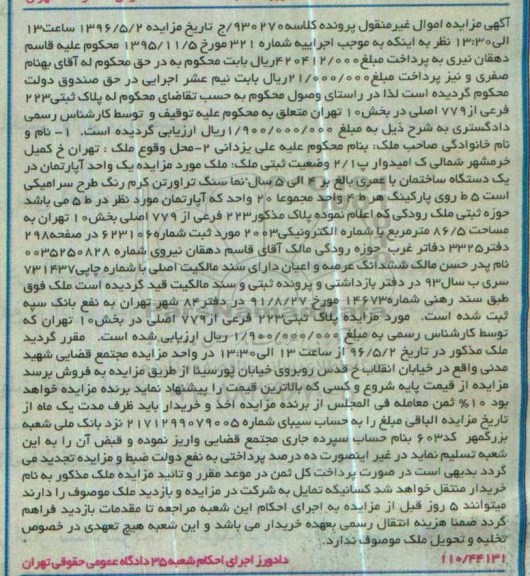 آگهی مزایده اموال غیرمنقول پرونده کلاسه ۹۳۰۲۷۰/ج تاریخ مزایده ۱۳۹۶/۵/۲ ساعت ۱۳
الی ۱۳:۳۰ نظر به اینکه به موجب اجراییه شماره ۳۲۱ مورخ ۱۳۹۵/۱۱/۵ محکوم علیه قاسم
دهقان نیری به پرداخت مبلغ ۴۲۰۴۱۲/۰۰۰ ریال بابت محکوم به در حق محکوم له آقای بهنام
صفری و نیز پرداخت مبلغ ۲۱/۰۰۰/۰۰۰ ریال بابت نیم عشر اجرایی در حق صندوق دولت
محکوم گردیده است لذا در راستای وصول محکوم به حسب تقاضای محکوم له پلاک ثبتی ۲۲۳
فرعی از ۷۷۹ اصلی در بخش ۱۰ تهران متعلق به محکوم علیه توقیف و توسط کارشناس رسمی
دادگستری به شرح ذیل به مبلغ ۱/۹۰۰/۰۰۰/۰۰۰ ریال ارزیابی گردیده است. ۱- نام و
نام خانوادگی صاحب ملک: بنام محکوم علیه علی یزدانی ۲-محل وقوع ملک : تهران خ کمیل
خرمشهر شمالی ک امیدوار پ ۲/۱ وضعیت ثبتی ملک: ملک مورد مزایده یک واحد آپارتمان در
یک دستگاه ساختمان با عمری بالغ بر ۴ الی ۵ سال-نما سنگ تراورتن کرم رنگ طرح سرامیکی
است ۵ ط روی پارکینگ هر ط ۴ واحد مجموعا ۲۰ واحد که آپارتمان مورد نظر در ط ۵ می باشد
حوزه ثبتی ملک رودکی که اعلام نموده پلاک مذکور ۲۲۳ فرعی از ۷۷۹ اصلی بخش ۱۰ تهران به
مساحت ۸۶/۵ مترمربع با شماره الکترونیکی ۲۰۰۳ مورد ثبت شماره ۶۲۳۱۰۶ در صفحه ۲۹۸
دفتر ۳۳۲۵ دفاتر غرب حوزه رودکی مالک آقای قاسم دهقان نیروی شماره ۰۰۳۵۲۵۰۸۲۸
نام پدر حسن مالک ششدانگ عرصه و اعیان دارای سند مالکیت اصلی با شماره چاپی ۷۳۱۴۳۷
سری ب سال ۹۳ در دفتر بازداشتی و پرونده ثبتی و سند مالکیت قید گردیده است ملک فوق
طبق سند رهنی شماره ۱۴۶۷۳ مورخ ۹۱/۸/۲۷ در دفتر ۸۴ شهر تهران به نفع بانک سپه
ثبت شده است. مورد مزایده پلاک ثبتی ۲۲۳ فرعی از ۷۷۹ اصلی در بخش ۱۰ تهران که
توسط کارشناس رسمی به مبلغ ۱/۹۰۰/۰۰۰/۰۰۰ ریال ارزیابی شده است. مقرر گردید
ملک مذکور در تاریخ ۹۶/۵/۲ از ساعت ۱۳ الی ۱۳:۳۰ در واحد مزایده مجتمع قضایی شهید
مدنی واقع در خیابان انقلاب خ قدس روبروی خیابان پورسینا از طریق مزایده به فروش برسد
مزایده از قیمت پایه شروع و کسی که بالاترین قیمت را پیشنهاد نماید برنده مزایده خواهد
بود ۱۰% ثمن معامله فی المجلس از برنده مزایده اخذ و خریدار باید ظرف مدت یک ماه از
تاریخ مزایده الباقی مبلغ را به حساب سیبای شماره ۲۱۷۱۲۹۹۰۷۹۰۰۵ نزد بانک ملی شعبه
بزرگمهر کد ۶۰۳ بنام حساب سپرده جاری مجتمع قضایی واریز نموده و قبض آن را به این
شعبه تسلیم نماید در غیر اینصورت ده درصد پرداختی به نفع دولت ضبط و مزایده تجدید می
گردد بدیهی است در صورت پرداخت کل ثمن در موعد مقرر و تائید مزایده ملک مذکور به نام
خریدار منتقل خواهد شد کسانیکه تمایل به شرکت در مزایده و بازدید ملک موصوف را دارند
میتوانند ۵ روز قبل از مزایده به اجرای احکام این شعبه مراجعه تا مقدمات بازدید فراهم
گردد ضمنا هزینه انتقال رسمی بعهده خریدار می باشد و این شعبه هیچ تعهدی در خصوص
تخلیه و تحویل ملک موصوف ندارد.
۱۱۰/۴۴۱۳۱ دادورز اجرای احکام شعبه ۳۵ دادگاه عمومی حقوقی تهران